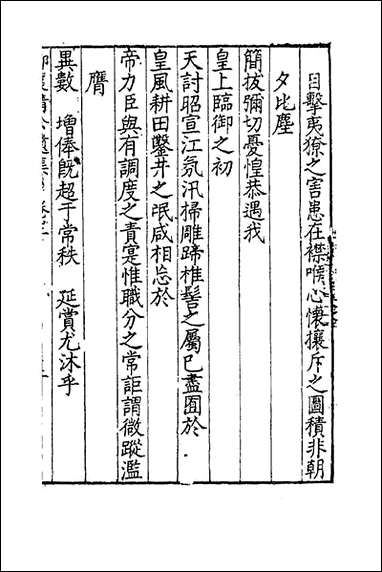 目擊夷獠之害患在襟喉心懷攘斥之圖積非朝
夕比塵
簡拔彌切憂惶恭遇我
皇上臨御之初
天討昭宣江氛汛掃雕蹄椎髻之屬已盡囿於
皇風耕田鑿井之氓咸相忘於
帝力臣與有調度之責寔惟職分之常詎謂微蹤濫
膺
異數　增俸既超于常秩　延賞尤沐乎